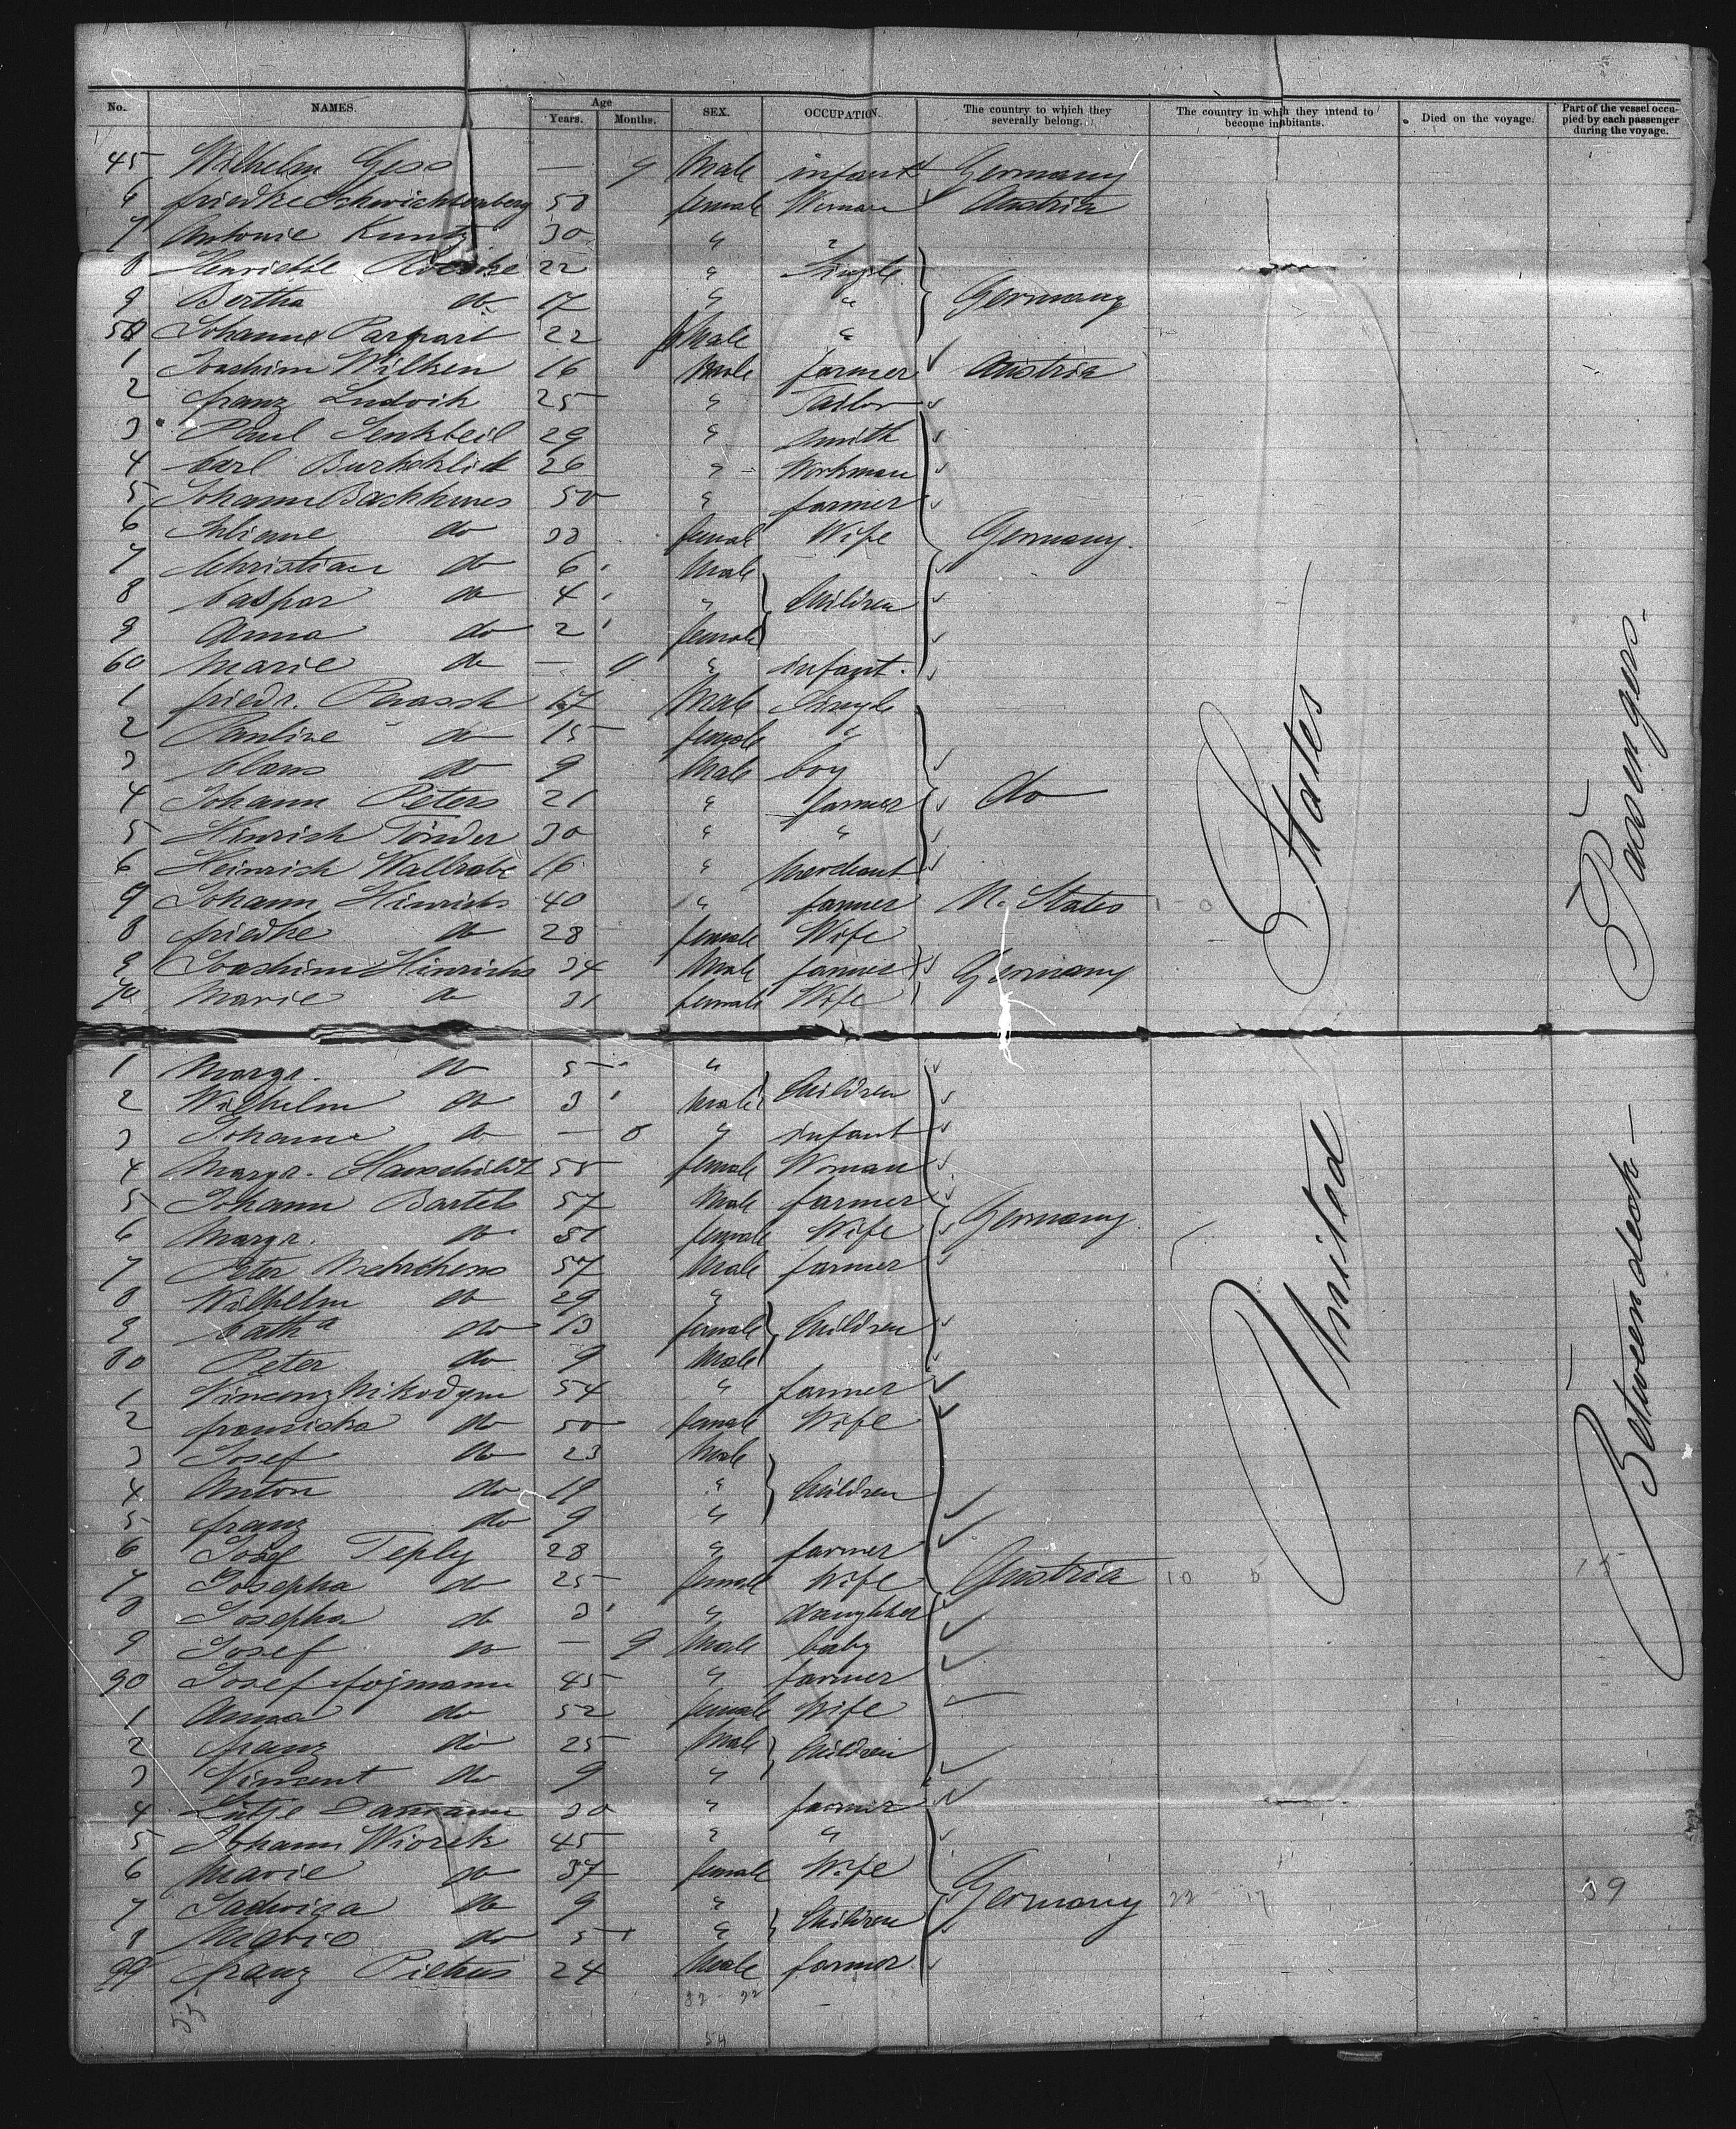 No. NAMES. Age Years. Months. SEX. OCCUPATION. The country to which they severally belong. The country in whih they intend to become inhabitants. Died on the voyage. Part of the vessel occupied by each passenger during the voyage.
45 Wilhelm Gess — 9 Male infant Germany
6 friedke Schwichtenberg 58 female Woman Austria
7 Antonie Kuntz 30 " "
8 Henriette 22 " Single
9 Bertha do 17 " " Germany
50 Johann Parpart 22 Male "
1 Joachim Wilken 16 Male farmer Austria
2 franz Ludvik 25 " Tailor
3 Paul Senkbeil 29 " Smith
4 Carl 26 " Workman
5 Johann Backhaus 50 " farmer
6 Juliane do 33 female Wife Germany.
7 Christian do 6 Male
8 Caspar do 4 " Children
9 Anna do 2 female
60 Marie do — 11 " infant.
1 friedr. Paasch 17 Male Single
2 Pauline do 15 female "
3 Claus do 9 Male boy
4 Johann Peters 21 " farmer do
5 Hinrich Tönder 30 " "
6 Heinrich Wallrabe 16 " Merchant
9 Johann Hinrichs 40 " farmer U. States
8 friedke do 28 female Wife
9 Joachim Hinrichs 34 Male farmer Germany
70 Marie do 31 female Wife
1 Margr. do 5 " Children
2 Wilhelm do 3 Male
3 Johann do — 8 " infant
4 Margr. Hauschildt 55 female Woman
5 Johann Bartels 57 Male farmer
6 Margr. do 51 female Wife Germany.
7 Peter 57 Male farmer
8 Wilhelm do 29 "
9 Cath a do 13 female Children
80 Peter do 9 Male
1 Vincenz Nikodym 54 " farmer
2 franziska do 50 female Wife
3 Josef do 23 Male
4 Anton do 19 " Children
5 franz do 9 "
6 Josef Teply 28 " farmer
7 Josepha do 25 female Wife Austria
8 Josepha do 3 " daughter
9 Josef do — 9 Male baby
90 Josef fojmann 45 " farmer
1 Anna do 52 female Wife
2 franz do 25 Male Children
3 Vincent do 9 "
4 Lütje Dammann 30 " farmer
5 Johann Wiorek 45 " "
6 Marie do 37 female Wife
7 Jadwiga do 9 " Germany
8 do 5 " Children
99 franz 24 Male farmer
United States
Between deck — Passengers.
39
55
54